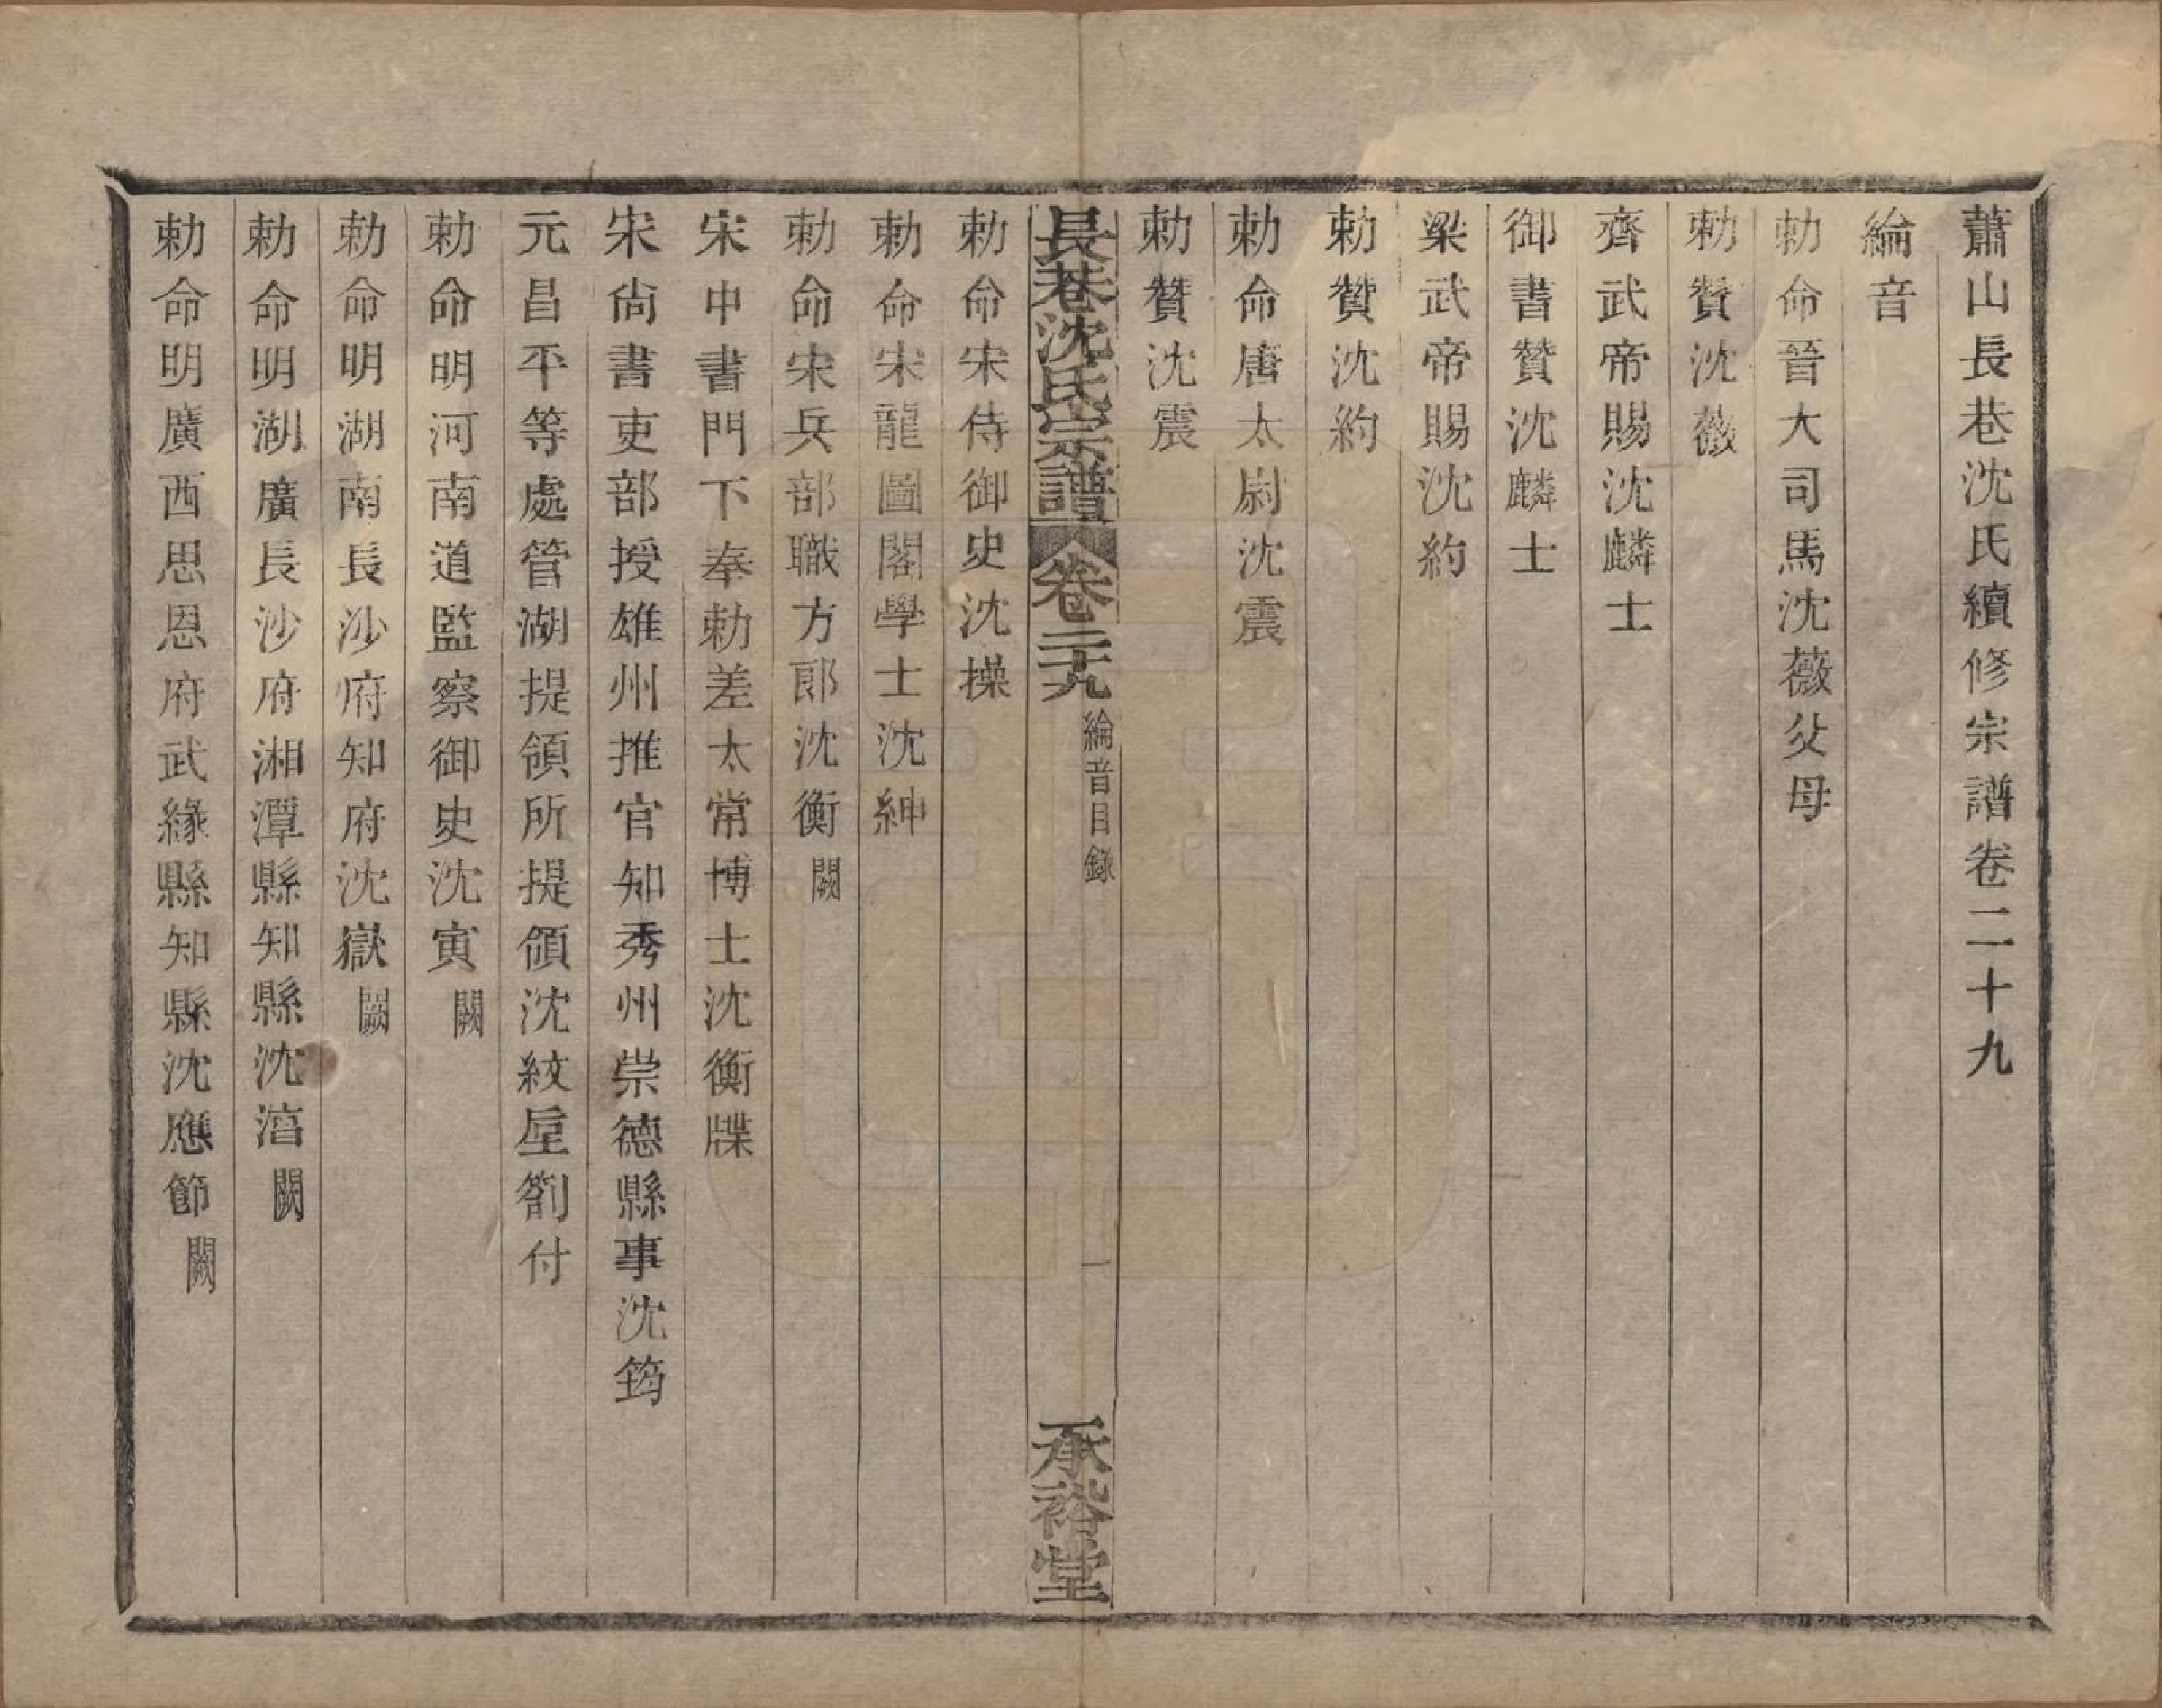 蕭山長巷沈氏續修宗譜卷二十九
綸音
勅命晉大司馬沈薇父母
勅贊沈薇
齊武帝賜沈麟士
御書贊沈麟士
梁武帝賜沈約
勅贊沈約
勅命唐太尉沈震
勅贊沈震
長巷沈氏宗譜 卷二十九 綸音目錄 一 承裕堂
勅命宋侍御史沈操
勅命宋龍圖閣學士沈紳
勅命宋兵部職方郎沈衡 闕
宋中書門下奉勅差太常博士沈衡牒
宋尚書吏部授雄州推官知秀州崇德縣事沈筠
元昌平等處管湖提領所提領沈紋垕劄付
勅命明河南道監察御史沈寅 闕
勅命明湖南長沙府知府沈嶽 闕
勅命明湖廣長沙府湘潭縣知縣沈㴞 闕
勅命明廣西思恩府武緣縣知縣沈應節 闕